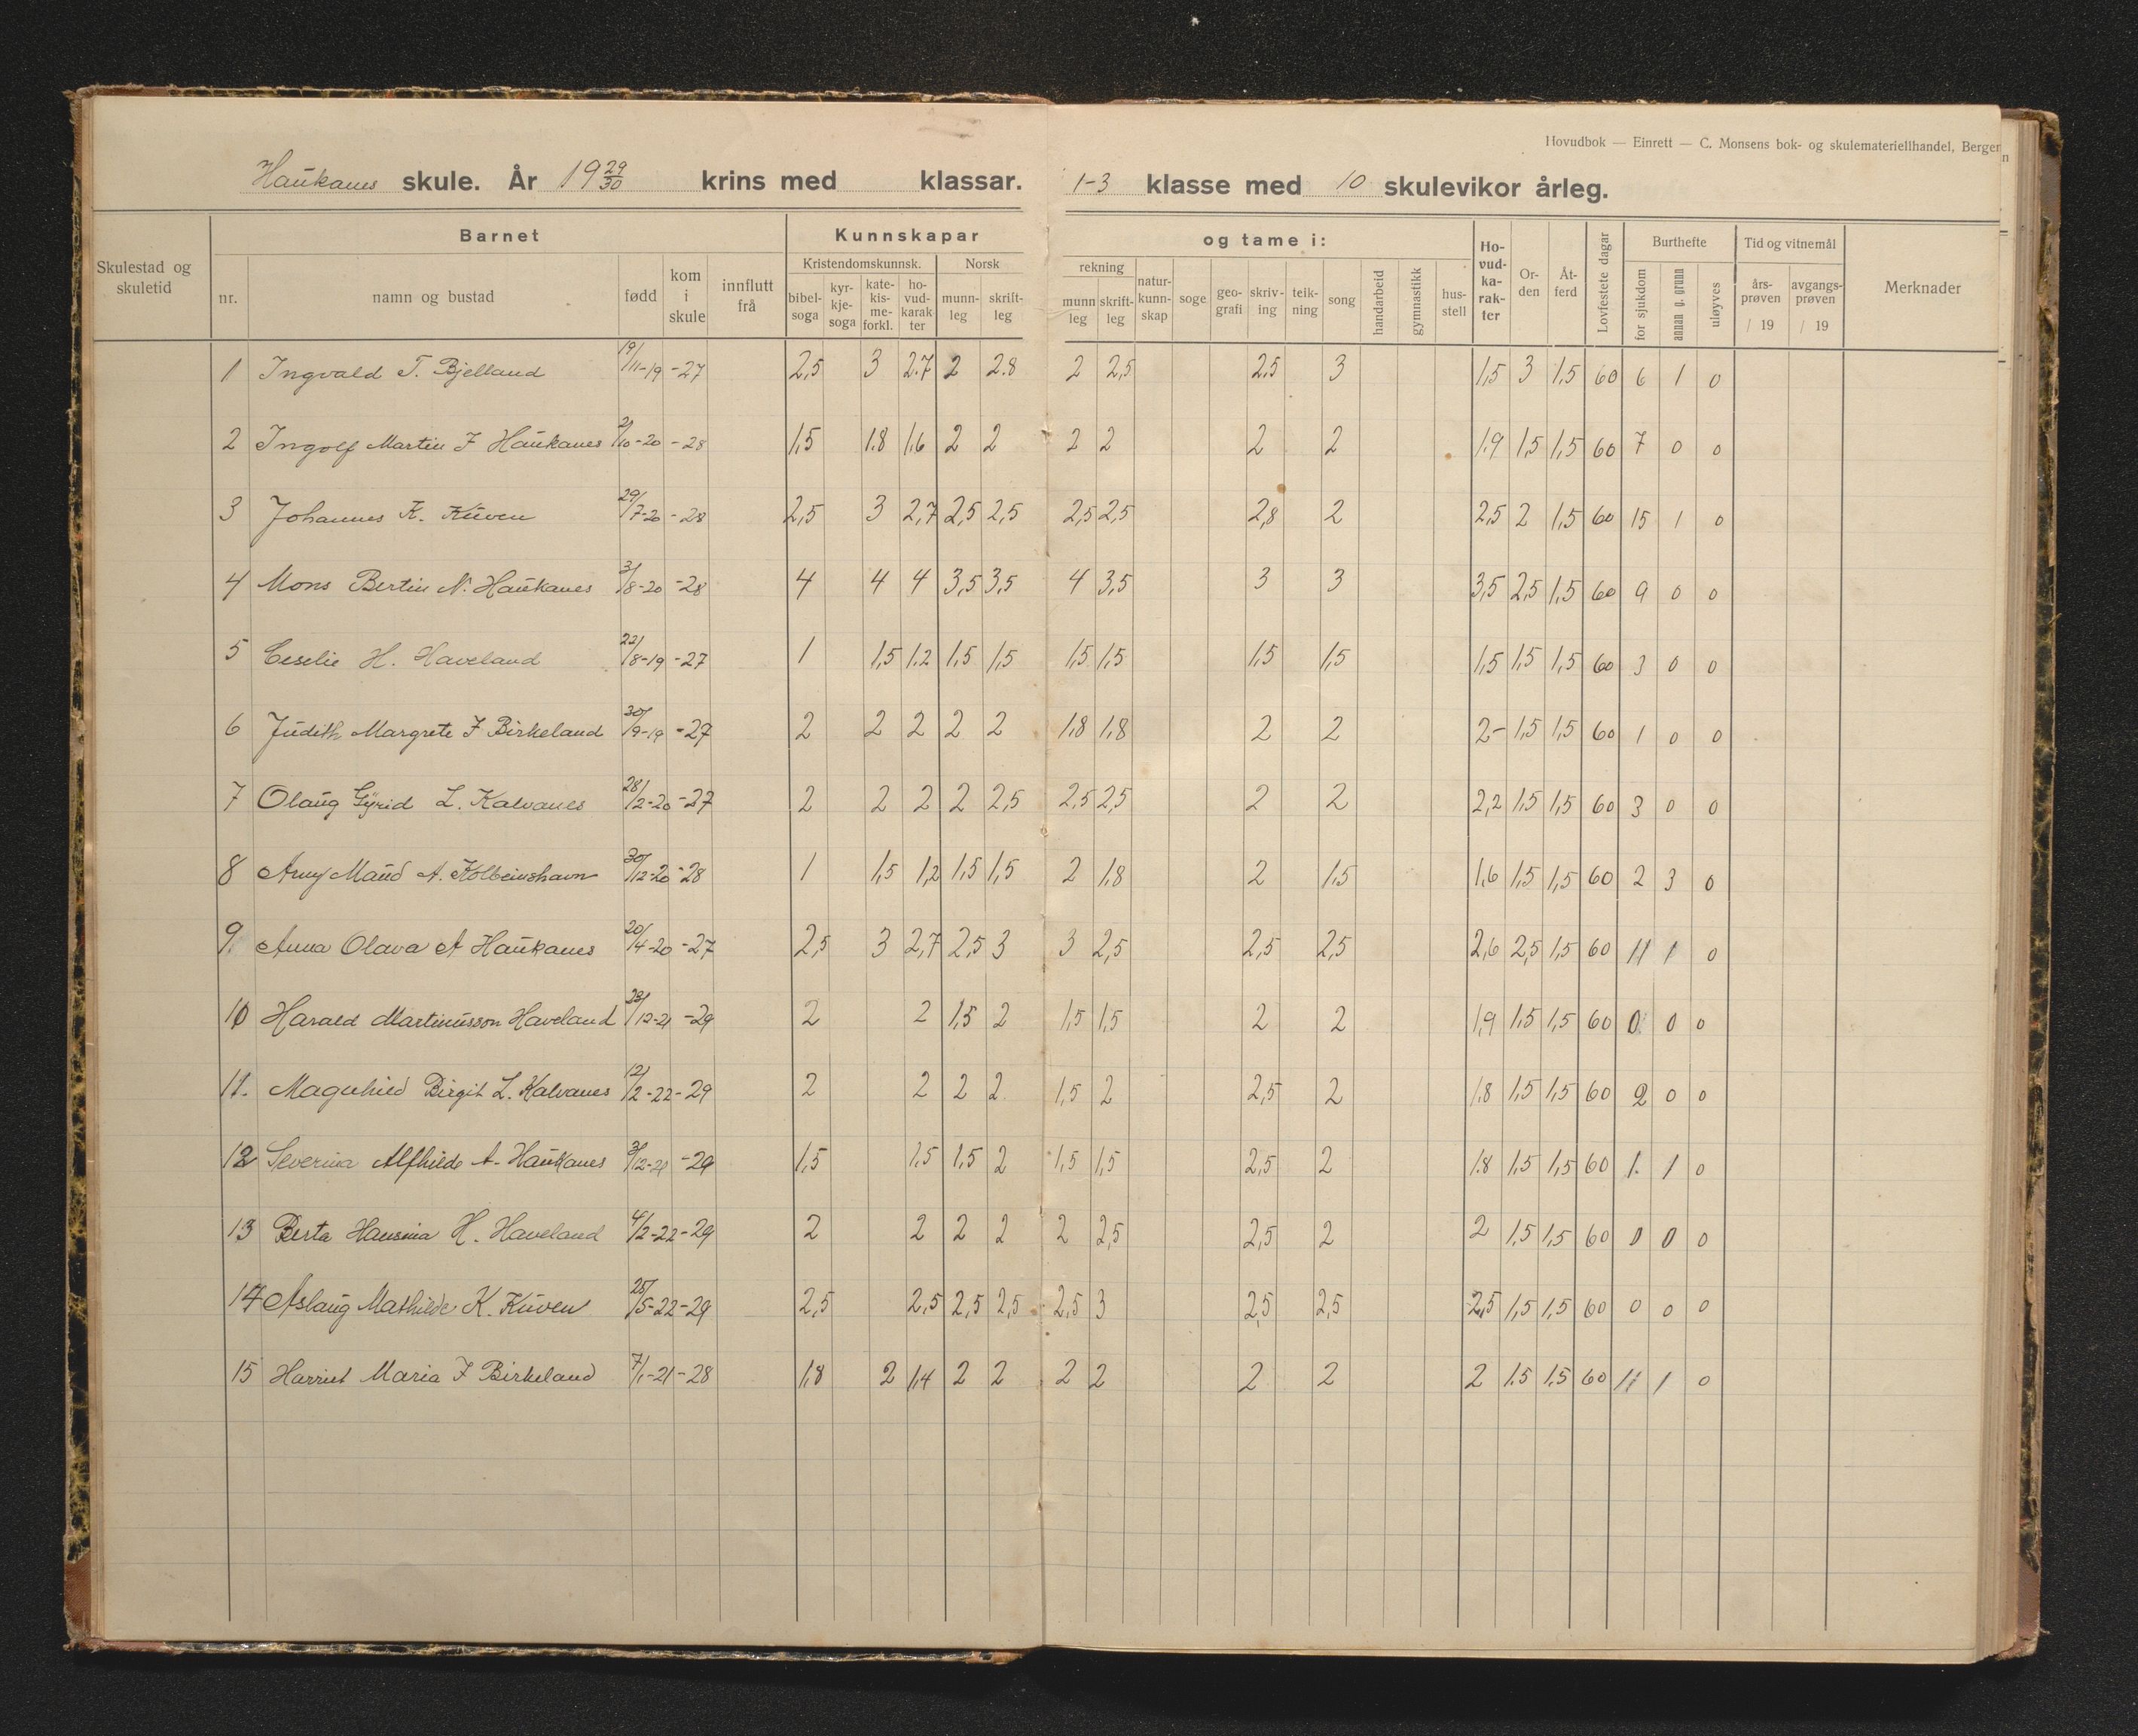 Hovudbok — Einrett — C. Monsens bok- og skulemateriellhandel, Bergen
Haukanes skule. År 19 29/30 krins med klassar. 1-3 klasse med 10 skulevikor årleg.
Skulestad og skuletid
Barnet
Kunnskapar og tame i:
nr. namn og bustad fødd kom i skule innflutt frå
Kristendomskunnsk. Norsk rekning
bibel-soga kyr-kje-soga kate-kis-me-forkl. ho-vud-karak-ter munn-leg skrift-leg munn leg skrift-leg natur-kunn-skap soge geo-grafi skriv-ing teik-ning song handarbeid gymnastikk hus-stell
Ho-vud-ka-rak-ter Or-den Åt-ferd Lovfestete dagar
Burthefte
for sjukdom annan g. grunn uløyves
Tid og vitnemål
års-prøven / 19 avgangs-prøven / 19
Merknader
1 Ingvald T. Bjelland 19/11-19 -27 2,5 3 2.7 2 2.8 2 2,5 2,5 3 1,5 3 1,5 60 6 1 0
2 Ingolf Martin F Haukanes 2/10-20 -28 1,5 1.8 1,6 2 2 2 2 2 2 1,9 1,5 1,5 60 7 0 0
3 Johannes K. Kuven 29/7-20 -28 2,5 3 2,7 2,5 2,5 2,5 2,5 2,8 2 2,5 2 1,5 60 15 1 0
4 Mons Bertin N. Haukanes 3/8-20 -28 4 4 4 3,5 3,5 4 3,5 3 3 3,5 2,5 1,5 60 9 0 0
5 Ceselie H. Haveland 22/8-19 -27 1 1,5 1.2 1,5 1,5 1,5 1,5 1,5 1,5 1,5 1,5 1,5 60 3 0 0
6 Judith Margrete F Birkeland 30/9-19 -27 2 2 2 2 2 1,8 1,8 2 2 2- 1,5 1,5 60 1 0 0
7 Olaug Gyrid L. Kalvanes 28/2-20 -27 2 2 2 2 2,5 2,5 2,5 2 2 2,2 1,5 1,5 60 3 0 0
8 Arny Maud A. Kolbeinshavn 30/12-20 -28 1 1,5 1,2 1,5 1,5 2 1,8 2 1,5 1,6 1,5 1,5 60 2 3 0
9. Anna Olava A Haukanes 20/4-20 -27 2,5 3 2,7 2,5 3 3 2,5 2,5 2,5 2,6 2,5 1,5 60 11 1 0
10 Harald Martinusson Haveland 23/12-21 -29 2 2 1,5 2 1,5 1,5 2 2 1,9 1,5 1,5 60 0 0 0
11. Magnhild Birgit L. Kalvanes 12/2-22 -29 2 2 2 2 1,5 2 2,5 2 1.8 1,5 1,5 60 2 0 0
12 Severina Alfhilde A. Haukanes 3/12-21 -29 1,5 1,5 1,5 2 1,5 1,5 2,5 2 1.8 1,5 1,5 60 1. 1 0
13 Berta Hansina H. Haveland 4/2-22 -29 2 2 2 2 2 2,5 2,5 2 2 1,5 1,5 60 0 0 0
14 Aslaug Mathilde K. Kuven 25/5-22 -29 2,5 2,5 2,5 2,5 2,5 3 2,5 2,5 2,5 1,5 1,5 60 0 0 0
15 Harriet Maria F Birkeland 7/1-21 -28 1,8 2 1,4 2 2 2 2 2 2 2 1.5 1.5 60 11 1 0